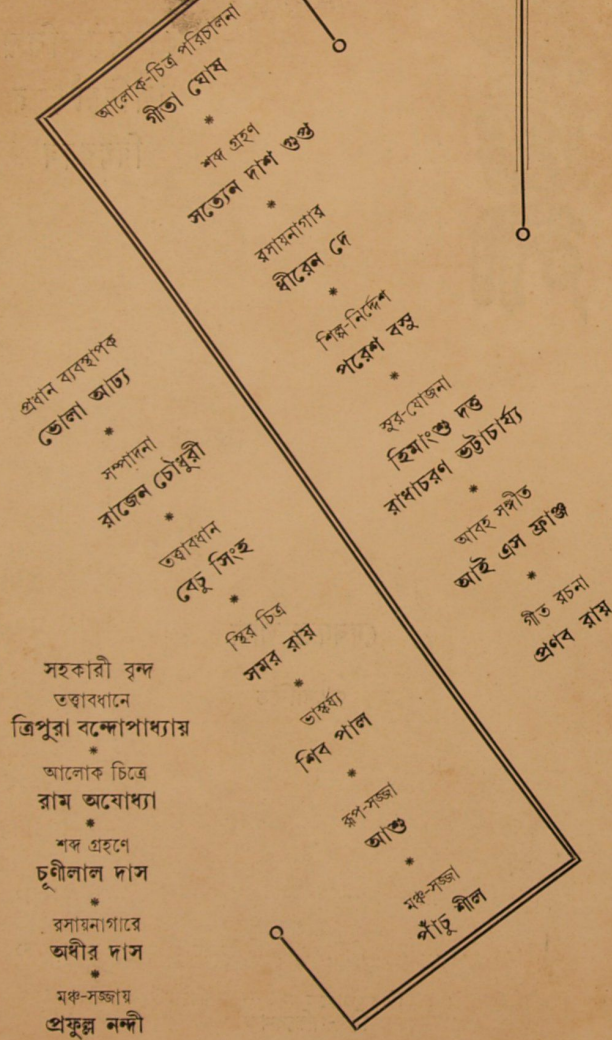 আলোক-চিত্র পরিচালনা
গীতা ঘোষ
*
শব্দ গ্রহণ
সত্যেন দাশ গুপ্ত
*
রসায়নাগার
ধীরেন দে
*
শিল্প-নির্দ্দেশ
পরেশ বসু
*
সুর-যোজনা
হিমাংশু দত্ত
রাধাচরণ ভট্টাচার্য্য
*
আবহ সঙ্গীত
আই এস ফ্রাঞ্জ
*
গীত রচনা
প্রণব রায়
প্রধান ব্যবস্থাপক
ভোলা আঢ্য
*
সম্পাদনা
রাজেন চৌধুরী
*
তত্ত্বাবধান
বেচু সিংহ
*
স্থির চিত্র
সমর রায়
*
ভাস্কর্য্য
শিব পাল
*
রূপ-সজ্জা
আশু
*
মঞ্চ-সজ্জা
পাঁচু শীল
সহকারী বৃন্দ
তত্ত্বাবধানে
ত্রিপুরা বন্দোপাধ্যায়
*
আলোক চিত্রে
রাম অযোধ্যা
*
শব্দ গ্রহণে
চূণীলাল দাস
*
রসায়নাগারে
অধীর দাস
*
মঞ্চ-সজ্জায়
প্রফুল্ল নন্দী